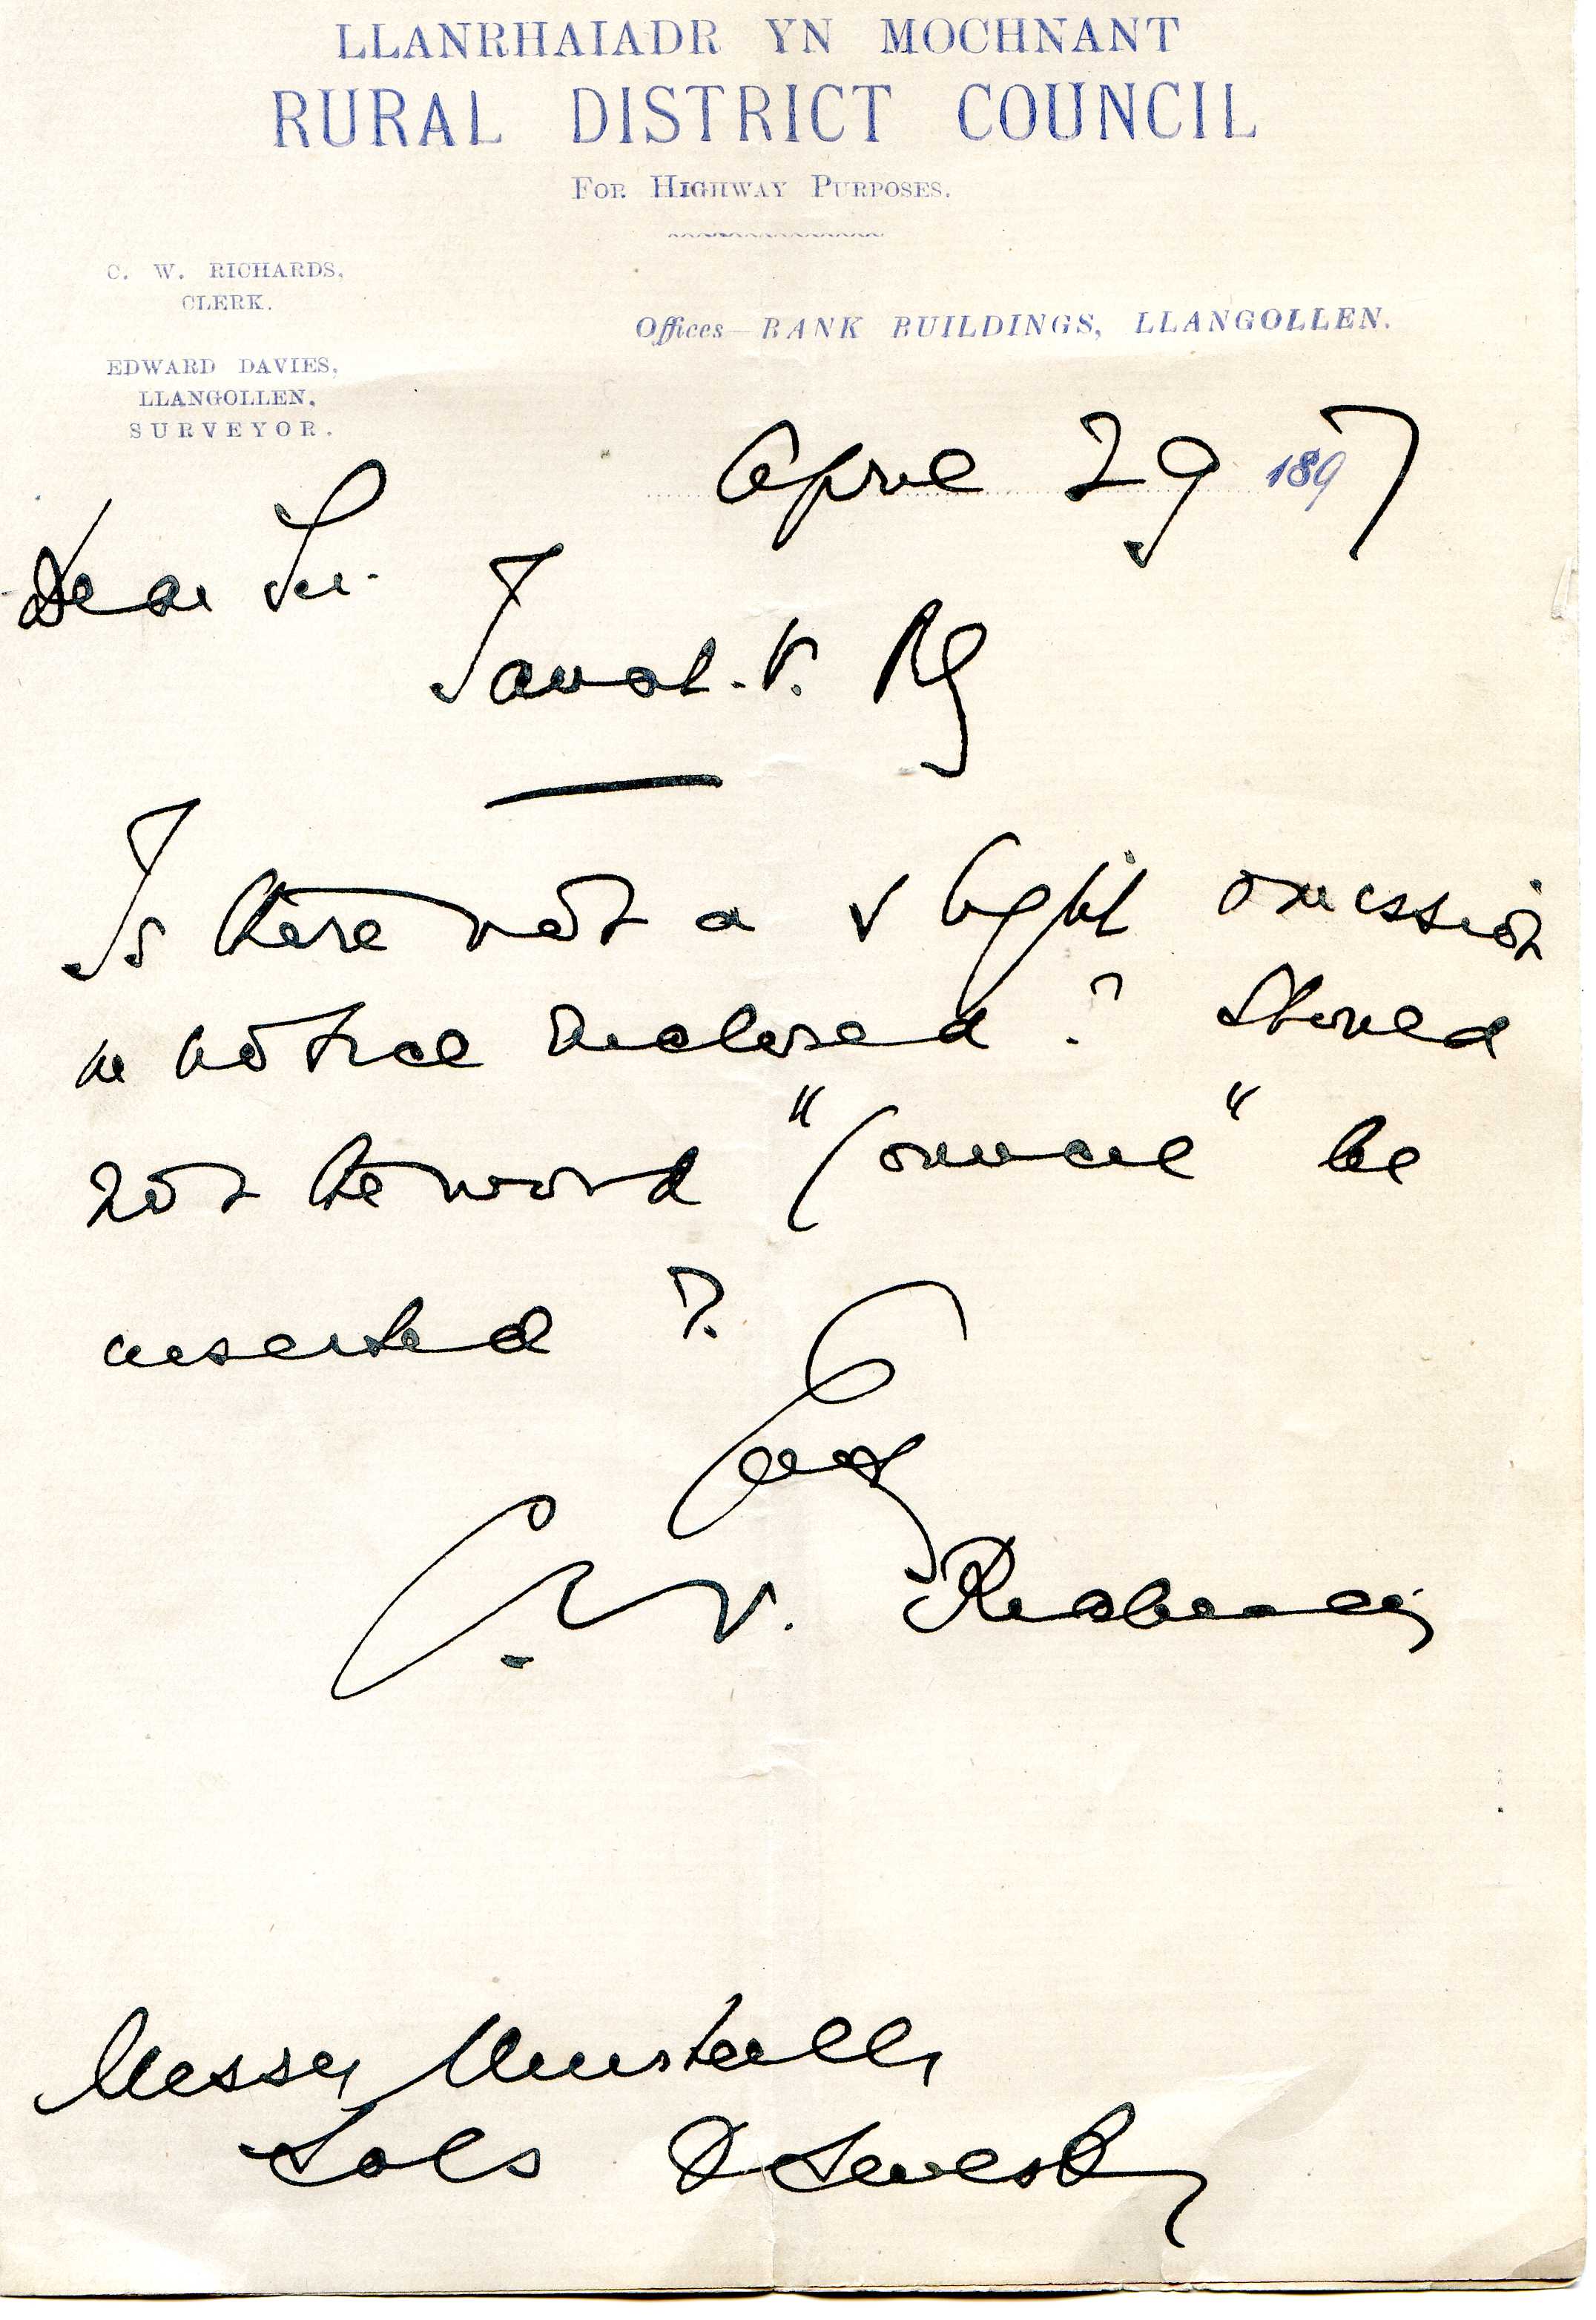 LLANRHAIADR YN MOCHNANT
RURAL DISTRICT COUNCIL
FOR HIGHWAY PURPOSES.
C. W. RICHARDS,
CLERK.
Offices—BANK BUILDINGS, LLANGOLLEN.
EDWARD DAVIES,
LLANGOLLEN,
SURVEYOR.
April 29 1897
Dear Sir
Tanat. V. Ry
Is there not a slight omission
in notice enclosed? Should
not the word "Council" be
inserted?
C. W. Richards
Messrs Minshalls
Sols Oswestry